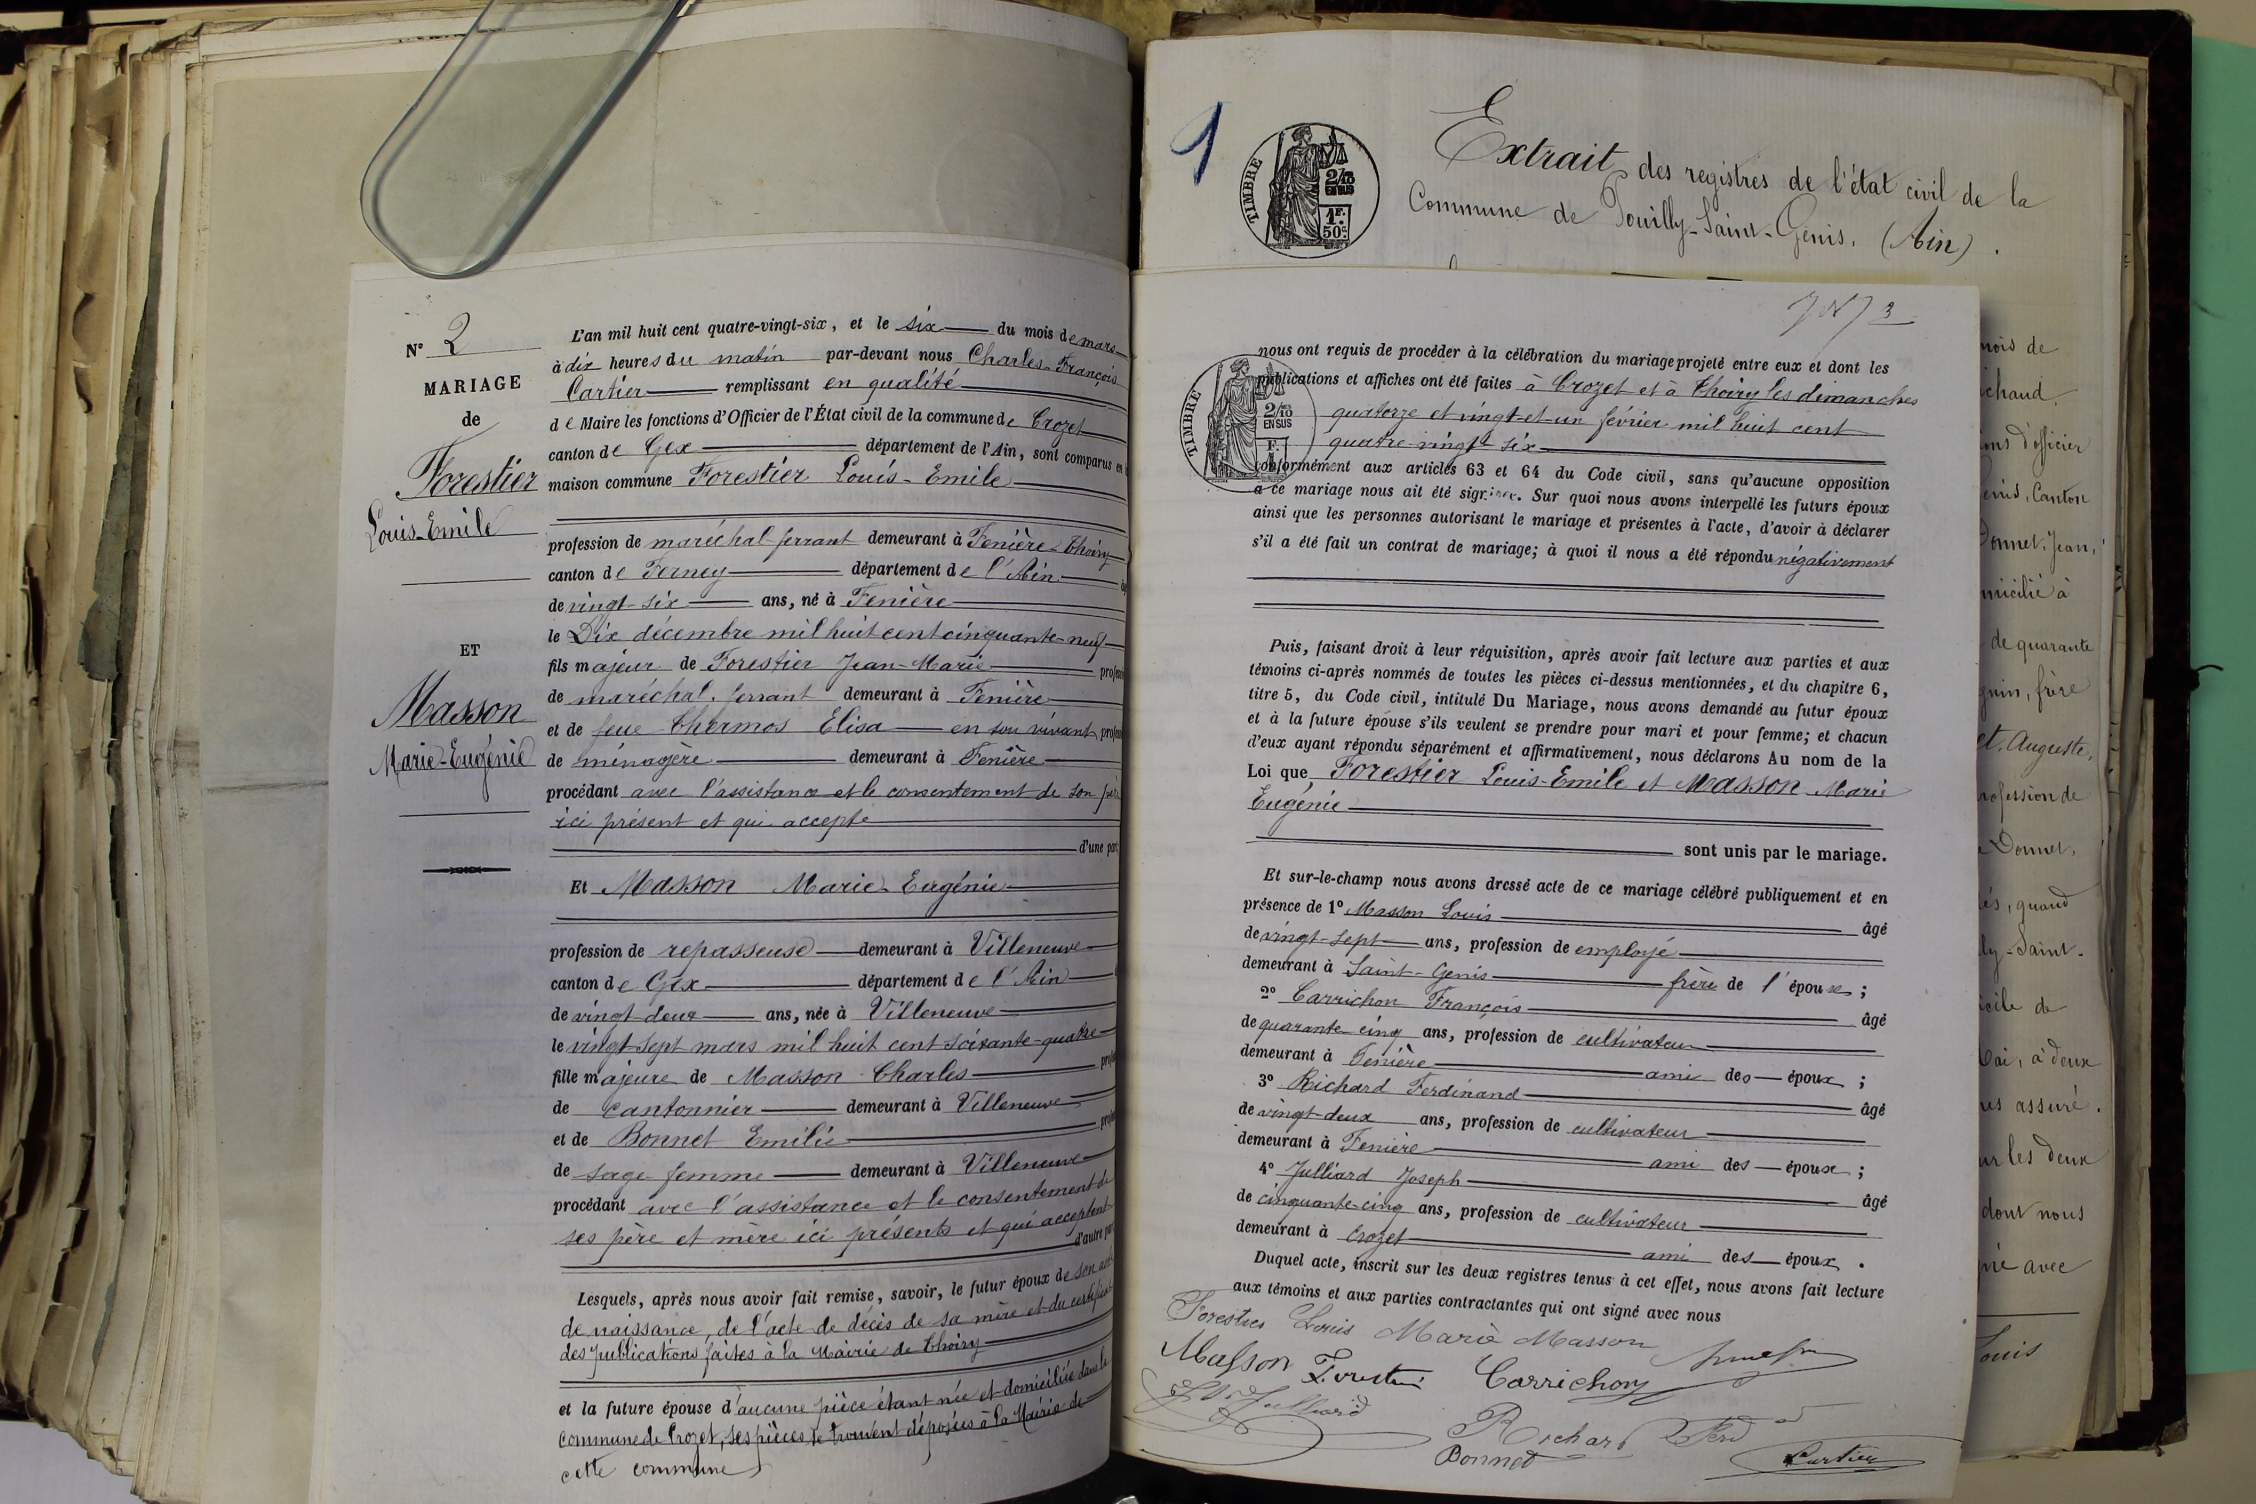 N° 2
MARIAGE
de
Forestier
Louis-Emile
ET
Masson
Marie-Eugénie
L'an mil huit cent quatre-vingt-six, et le six du mois de mars
à dix heures du matin par-devant nous Charles-François
Cartier remplissant en qualité
de Maire les fonctions d'Officier de l'État civil de la commune de Crozet
canton de Gex département de l'Ain, sont comparus en
maison commune Forestier Louis-Emile
profession de maréchal-ferrant demeurant à Fenière-Thoiry
canton de Ferney département de l'Ain
de vingt-six ans, né à Fenière
le Dix décembre mil huit cent cinquante-neuf
fils majeur de Forestier Jean-Marie
de maréchal ferrant demeurant à Fenière
et de feue Thermos Elisa en son vivant
de ménagère demeurant à Fenière
procédant avec l'assistance et le consentement de son
ici présent et qui accepte
d'une part
Et Masson Marie-Eugénie
profession de repasseuse demeurant à Villeneuve
canton de Gex département de l'Ain
de vingt-deux ans, née à Villeneuve
le vingt-sept mars mil huit cent soixante-quatre
fille majeure de Masson Charles
de cantonnier demeurant à Villeneuve
et de Bonnet Emilie
de sage femme demeurant à Villeneuve
procédant avec l'assistance et le consentement de
ses père et mère ici présents et qui acceptent
d'autre part
Lesquels, après nous avoir fait remise, savoir, le futur époux de son acte
de naissance, de l'acte de décès de sa mère et du certificat
des publications faites à la Mairie de Thoiry
et la future épouse d'aucune pièce étant née et domiciliée dans la
commune de Crozet, ses pièces se trouvent déposées à la Mairie de
cette commune
1
TIMBRE
2/10
EN SUS
1F.
50c.
Extrait des registres de l'état civil de la
Commune de Pouilly-Saint-Genis. (Ain).
3
TIMBRE
2/10
EN SUS
nous ont requis de procéder à la célébration du mariage projeté entre eux et dont les
publications et affiches ont été faites à Crozet et à Thoiry les dimanches
quatorze et vingt-et-un février mil huit cent
quatre-vingt six
conformément aux articles 63 et 64 du Code civil, sans qu'aucune opposition
à ce mariage nous ait été signifiée. Sur quoi nous avons interpellé les futurs époux
ainsi que les personnes autorisant le mariage et présentes à l'acte, d'avoir à déclarer
s'il a été fait un contrat de mariage; à quoi il nous a été répondu négativement
Puis, faisant droit à leur réquisition, après avoir fait lecture aux parties et aux
témoins ci-après nommés de toutes les pièces ci-dessus mentionnées, et du chapitre 6,
titre 5, du Code civil, intitulé Du Mariage, nous avons demandé au futur époux
et à la future épouse s'ils veulent se prendre pour mari et pour femme; et chacun
d'eux ayant répondu séparément et affirmativement, nous déclarons Au nom de la
Loi que Forestier Louis-Emile et Masson Marie
Eugénie
sont unis par le mariage.
Et sur-le-champ nous avons dressé acte de ce mariage célébré publiquement et en
présence de 1° Masson Louis âgé
de vingt-sept ans, profession de employé
demeurant à Saint-Genis frère de l'épouse;
2° Carrichon François âgé
de quarante cinq ans, profession de cultivateur
demeurant à Fenière ami des époux;
3° Richard Ferdinand âgé
de vingt-deux ans, profession de cultivateur
demeurant à Fenière ami des époux;
4° Julliard Joseph âgé
de cinquante-cinq ans, profession de cultivateur
demeurant à Crozet ami des époux.
Duquel acte, inscrit sur les deux registres tenus à cet effet, nous avons fait lecture
aux témoins et aux parties contractantes qui ont signé avec nous
Forestier Louis Marie Masson
Masson Forestier Carrichon
Julliard
Richard Ferd
Bonnet Cartier
mois de
d'officier
Canton
Donnet, Jean,
domicilié à
de quarante
frère
et, Auguste,
profession de
Donnet,
quand
Saint-
de
à deux
assuré.
les deux
dont nous
avec
Louis